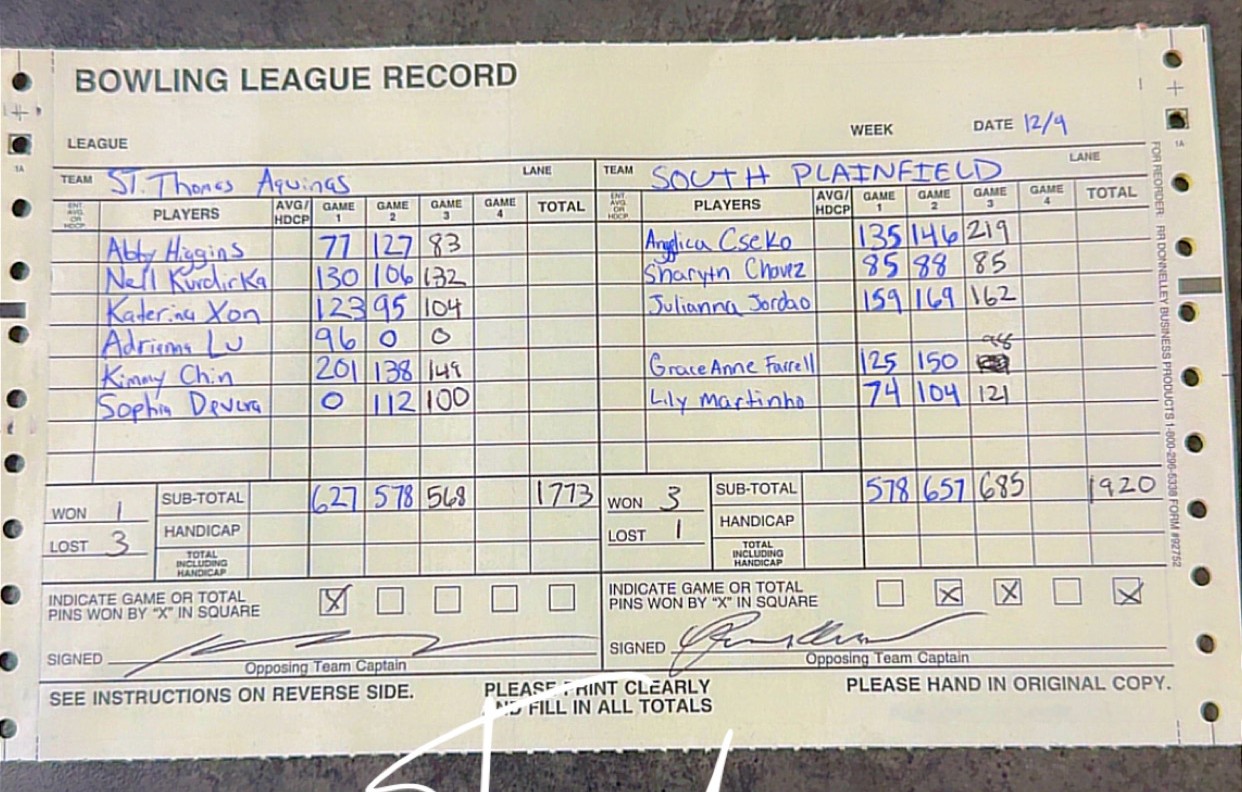 BOWLING LEAGUE RECORD
LEAGUE WEEK DATE 12/9
TEAM ST. Thomas Aquinas LANE TEAM SOUTH PLAINFIELD LANE
ENT AVG. OR HDCP PLAYERS AVG/HDCP GAME 1 GAME 2 GAME 3 GAME 4 TOTAL ENT AVG. OR HDCP PLAYERS AVG/HDCP GAME 1 GAME 2 GAME 3 GAME 4 TOTAL
Abby Higgins 77 127 83 Anglica Cseko 135 146 219
Nell Kurdicka 130 106 132 Sharytn Chavez 85 88 85
Katerina Xon 123 95 104 Julianna Jordao 159 169 162
Adrianna Lu 96 0 0
98
Kimmy Chin 201 138 149 GraceAnne Farrell 125 150
Sophia Devera 0 112 100 Lily Martinho 74 104 121
WON 1 SUB-TOTAL 627 578 568 1773 WON 3 SUB-TOTAL 578 657 685 1920
LOST 3 HANDICAP LOST 1 HANDICAP
TOTAL INCLUDING HANDICAP TOTAL INCLUDING HANDICAP
INDICATE GAME OR TOTAL X INDICATE GAME OR TOTAL X X X
PINS WON BY "X" IN SQUARE PINS WON BY "X" IN SQUARE
SIGNED SIGNED
Opposing Team Captain Opposing Team Captain
SEE INSTRUCTIONS ON REVERSE SIDE. PLEASE PRINT CLEARLY PLEASE HAND IN ORIGINAL COPY.
AND FILL IN ALL TOTALS
FOR REORDER: RR DONNELLEY BUSINESS PRODUCTS 1-800-296-6338 FORM #92752
1A
1A